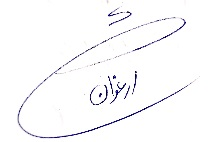 ارغوان